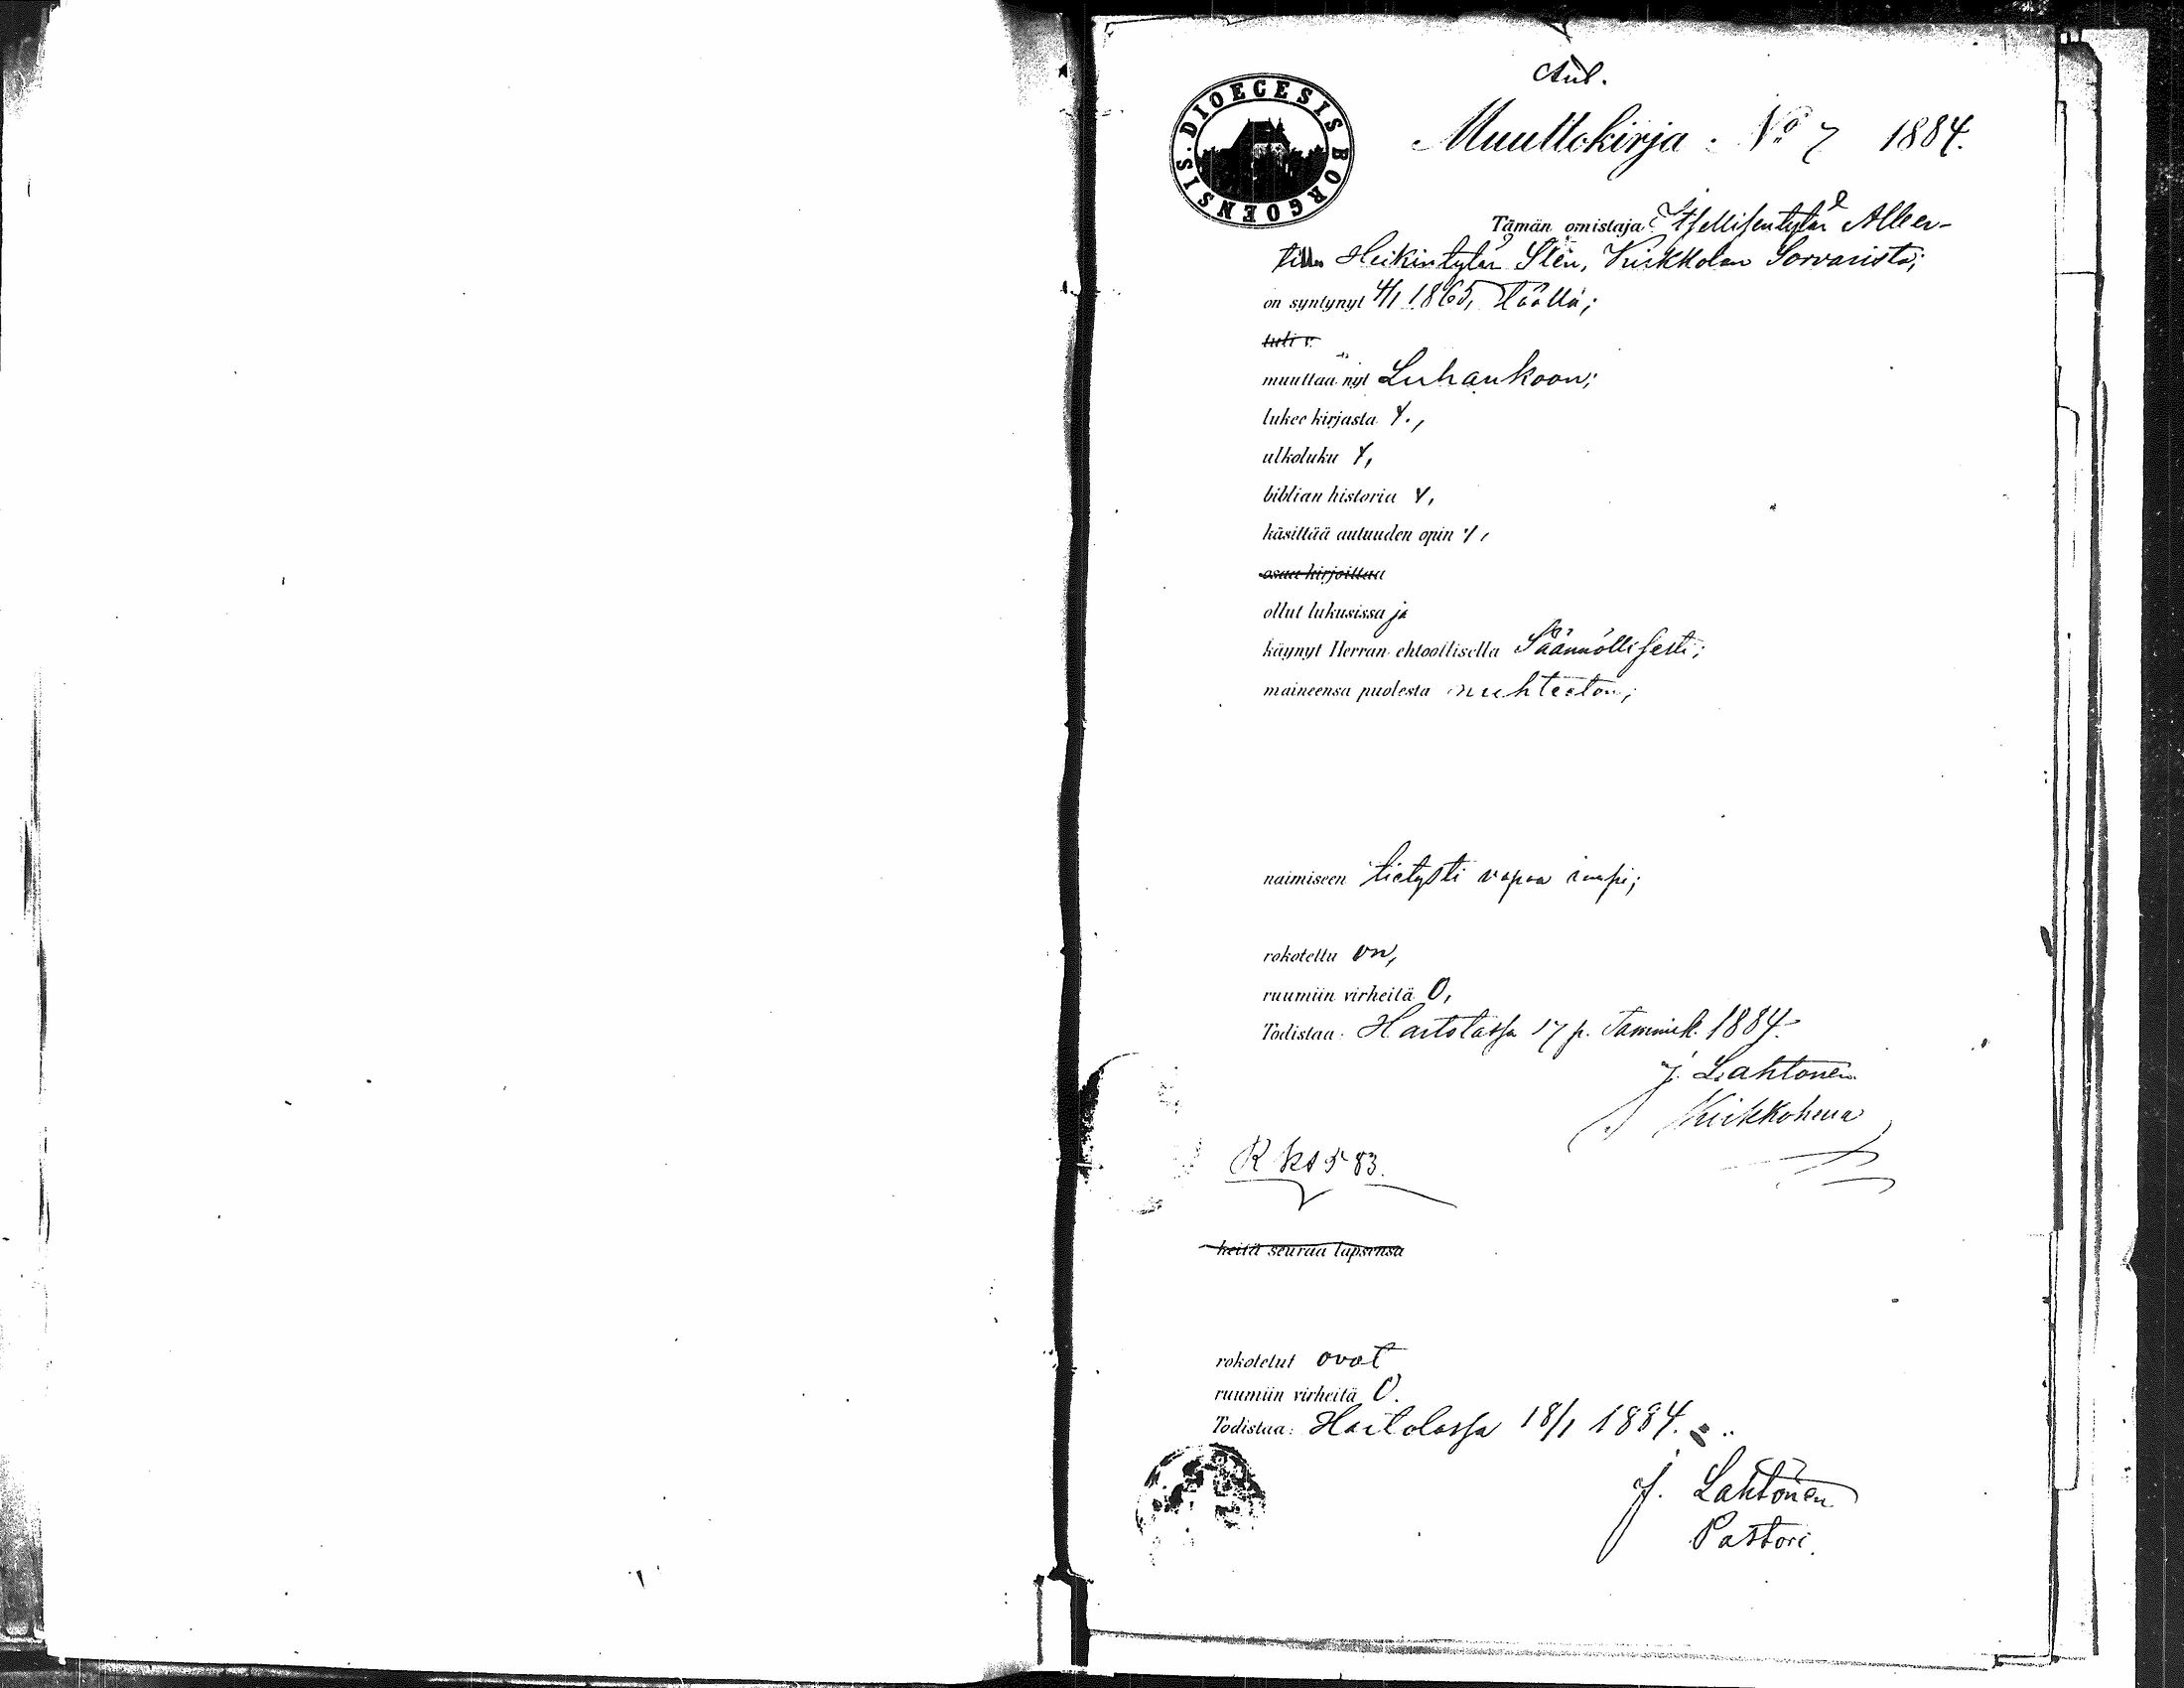 Aul.
DIOECESIS BORGOENSIS.
Muuttokirja: No 7 1884.
Tämän omistaja Itsellisentytär Alber-
tina Heikintytär Sten, Kirkkolan Sorvarista;
on syntynyt 4/1 1865, täällä;
tuli
muuttaa nyt Luhankoon;
lukee kirjasta
ulkoluku
biblian historia
käsittää autuuden opin
osaa kirjoittaa
ollut lukusissa ja
käynyt Herran ehtoollisella Säännöllisesti;
maineensa puolesta nuhteeton;
naimiseen tietysti vapaa impi;
rokotettu on,
ruumiin virheitä 0,
Todistaa: Hartolassa 17 p. Tammik. 1884.
J. Lahtonen
Kirkkoherra
R k s 583.
heitä seuraa lapsensa
rokotetut ovat
ruumiin virheitä 0.
Todistaa: Hartolassa 18/1 1884.
J. Lahtonen
Pastori.